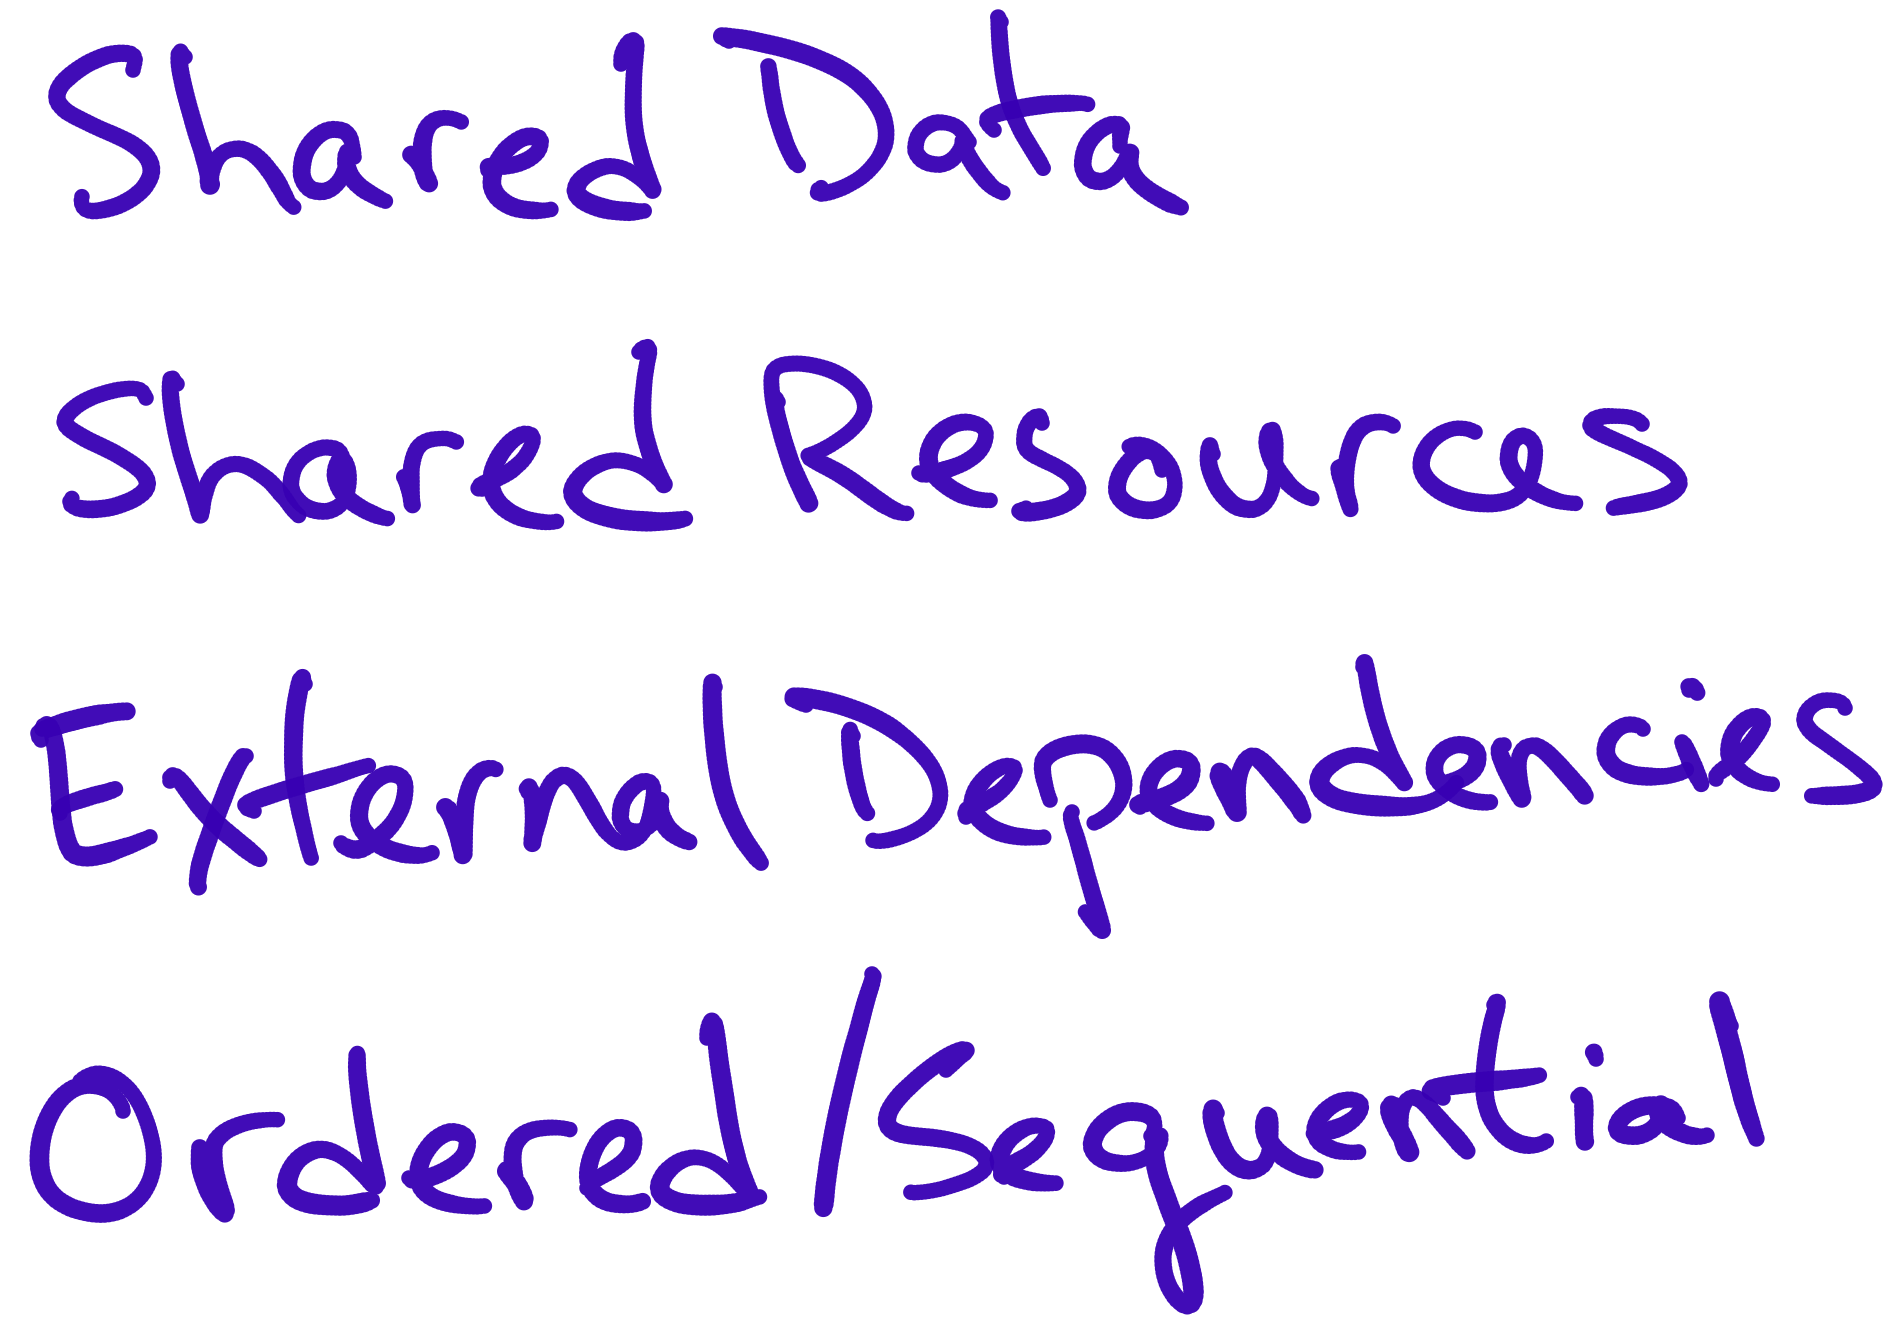 Shared Data
Shared Resources
External Dependencies
Ordered/Sequential